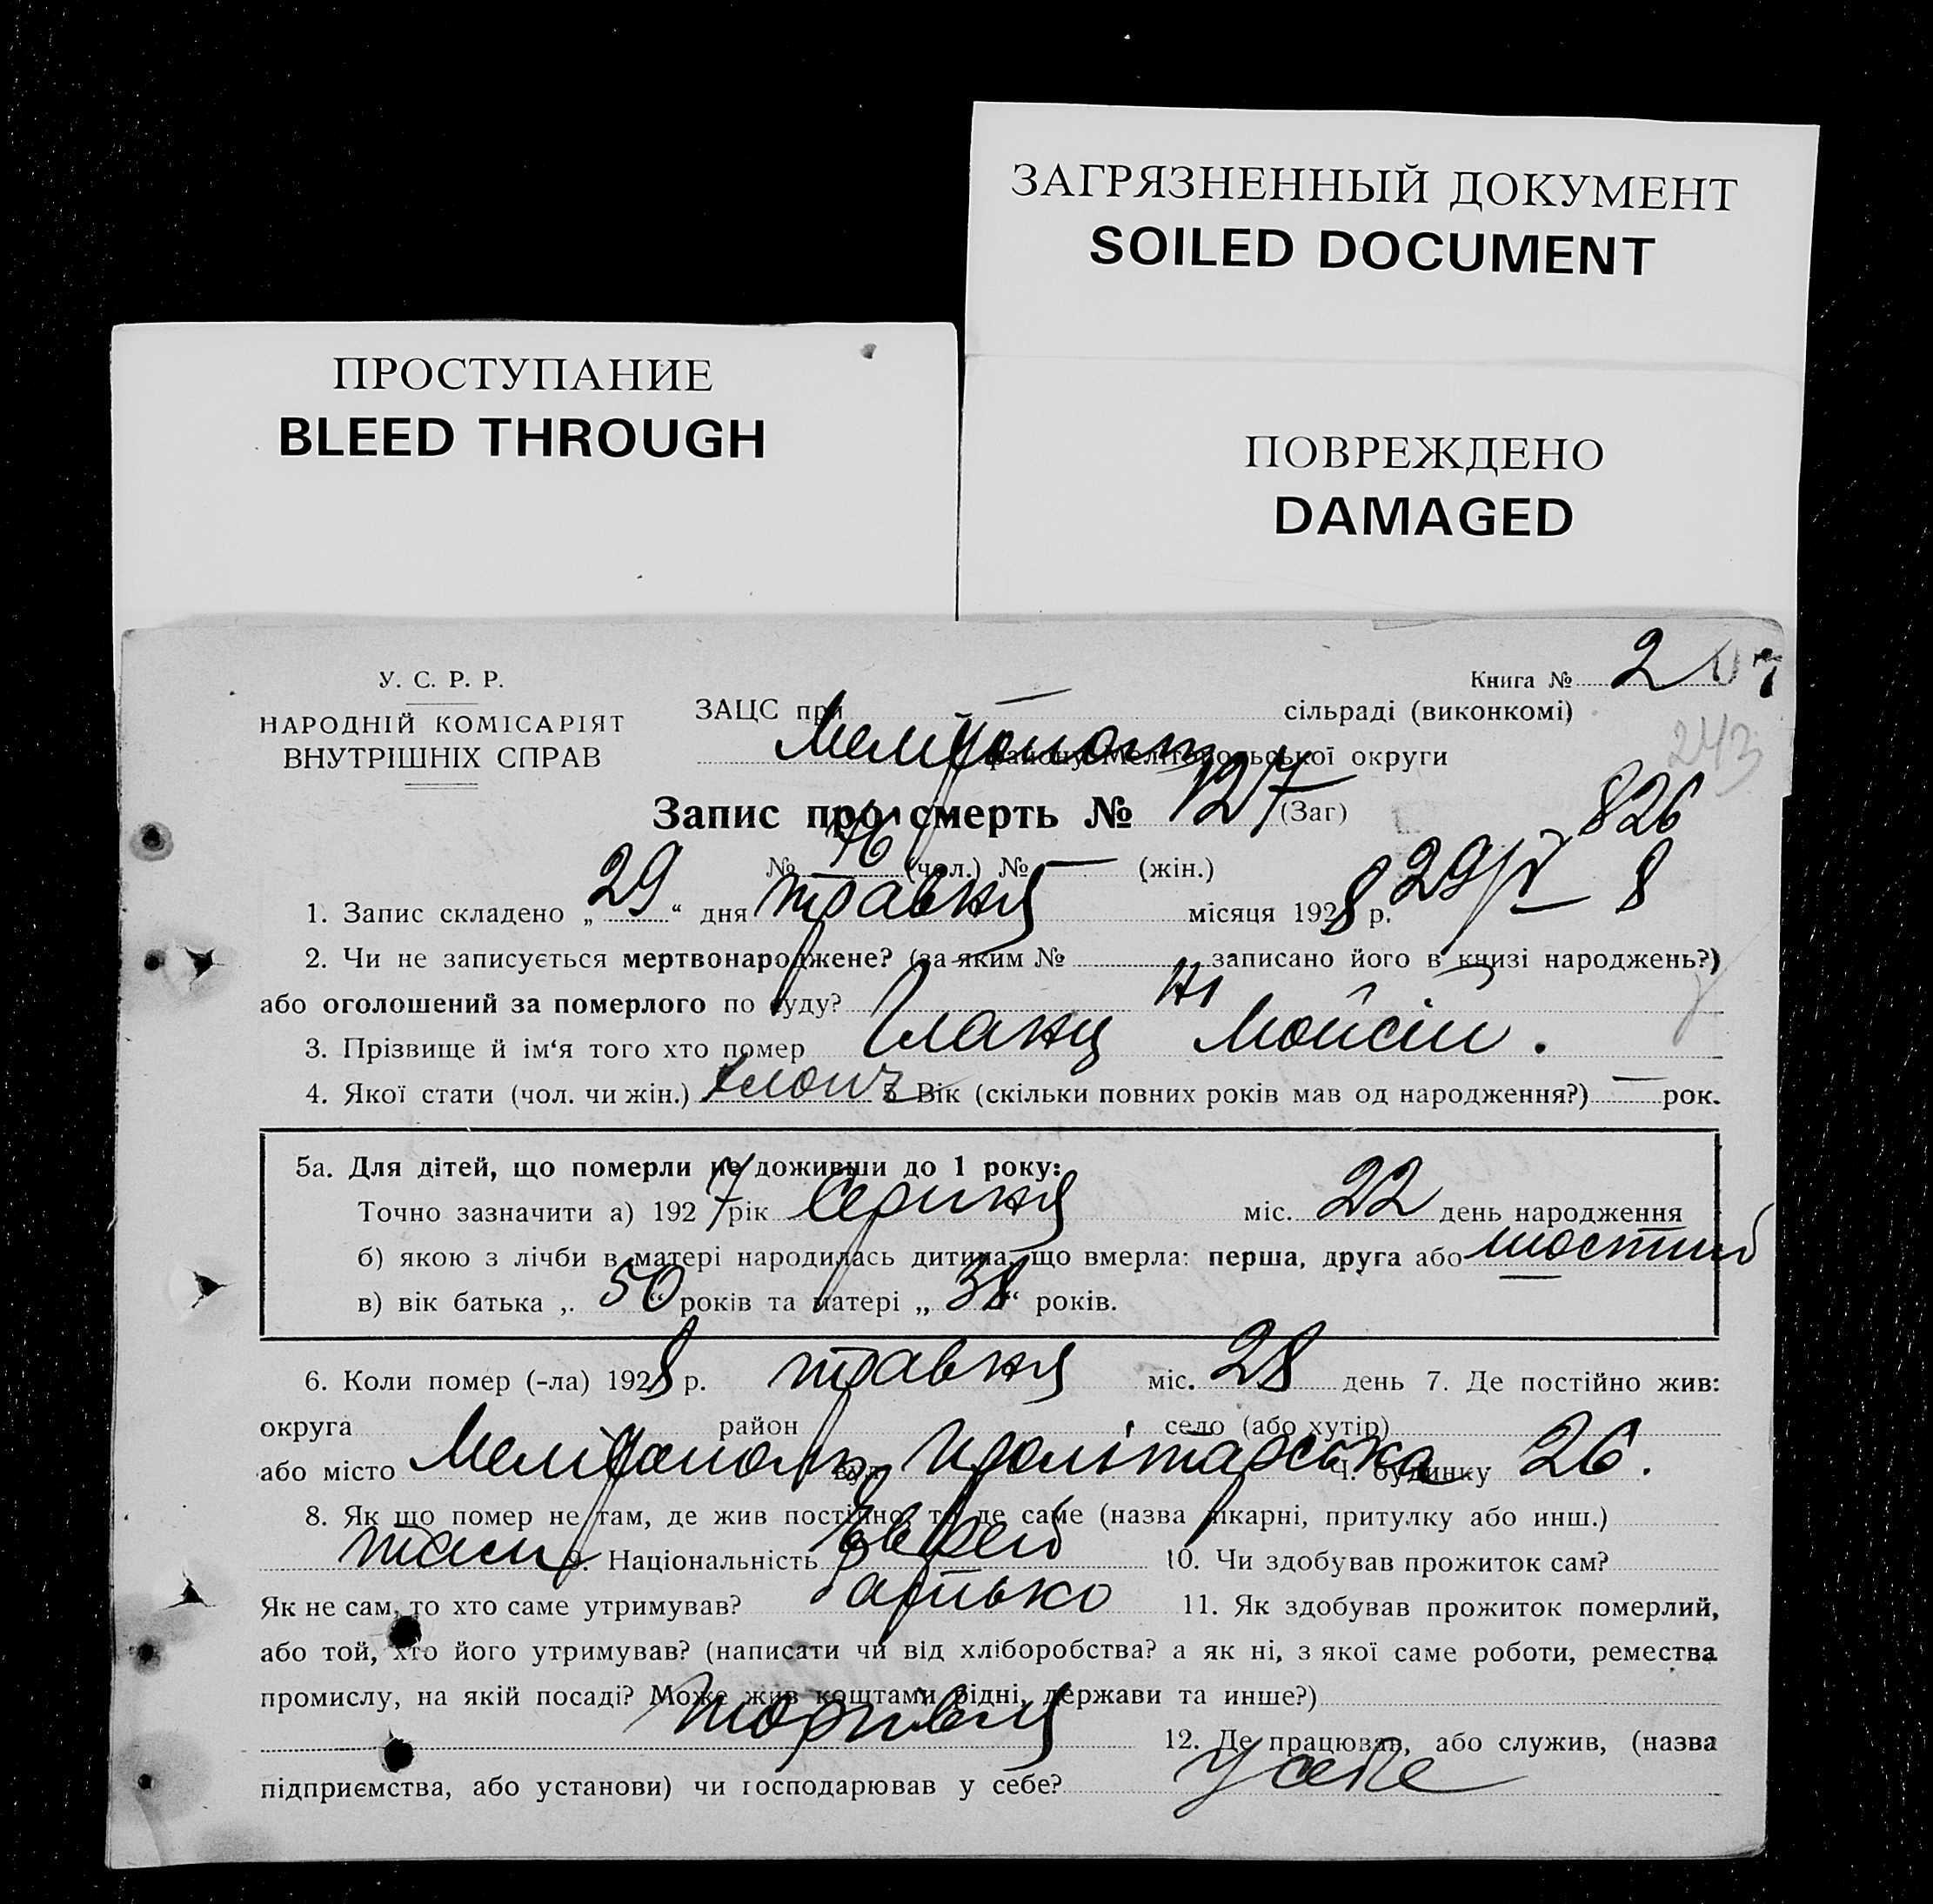 ЗАГРЯЗНЕННЫЙ ДОКУМЕНТ
SOILED DOCUMENT
ПРОСТУПАНИЕ
BLEED THROUGH
ПОВРЕЖДЕНО
DAMAGED
У. С. Р. Р.
НАРОДНІЙ КОМІСАРІЯТ
ВНУТРІШНІХ СПРАВ
Книга № 2
243
ЗАЦС при сільраді (виконкомі)
району Мелітопольської округи
Запис про смерть № 127 (Заг) 826
№ 76 (чол.) № — (жін.)
1. Запис складено „ 29 “ дня травня місяця 1928 р. 29/V 8
2. Чи не записується мертвонароджене? (за яким № записано його в книзі народжень?)
або оголошений за померлого по суду? Ні
3. Прізвище й ім‘я того хто помер Гланц Мойсій.
4. Якої стати (чол. чи жін.) хлопч 5 Вік (скільки повних років мав од народження?) — рок.
5а. Для дітей, що померли не доживши до 1 року:
Точно зазначити а) 1927 рік Серпня міс. 22 день народження
б) якою з лічби в матері народилась дитина, що вмерла: перша, друга або шостий
в) вік батька „ 50 років та матері „ 38 “ років.
6. Коли помер (-ла) 1928 р. травня міс. 28 день 7. Де постійно жив:
округа район село (або хутір)
або місто Мелітополь вул. Пролітарська Ч. будинку 26.
8. Як що помер не там, де жив постійно, то де саме (назва лікарні, притулку або инш.)
там 9. Національність Еврей 10. Чи здобував прожиток сам?
Як не сам, то хто саме утримував? батько 11. Як здобував прожиток померлий,
або той, хто його утримував? (написати чи від хліборобства? а як ні, з якої саме роботи, ремества
промислу, на якій посаді? Може жив коштами рідні, держави та инше?)
торгівля 12. Де працював, або служив, (назва
підприємства, або установи) чи господарював у себе? У себе